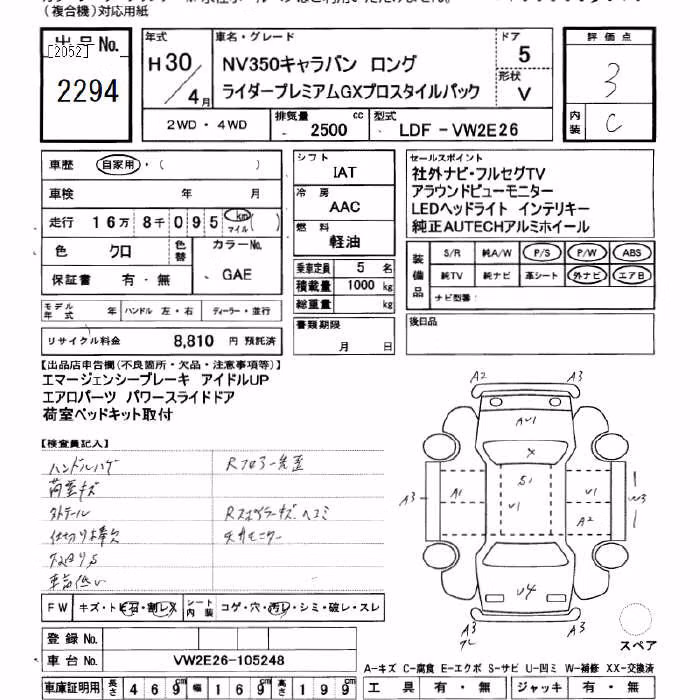 (複合機)対応用紙
出品No.
[2052]
2294
年式
H30/4月
車名・グレード
NV350キャラバン ロング
ライダープレミアムGXプロスタイルパック
ドア
5
形状
V
評価点
3
内装
C
2WD・4WD
排気量
2500 cc
型式
LDF-VW2E26
車歴 自家用・( )
車検 年 月
走行 16万8千095 km マイル ( )
色 クロ
色替
カラーNo.
GAE
保証書 有・無
モデル年式 年
ハンドル 左・右
ディーラー・並行
リサイクル料金 8,810 円 預託済
シフト
IAT
冷房
AAC
燃料
軽油
乗車定員 5 名
積載量 1000 kg
総重量 kg
書類期限
月 日
セールスポイント
社外ナビ・フルセグTV
アラウンドビューモニター
LEDヘッドライト インテリキー
純正AUTECHアルミホイール
装備品
S/R 純A/W P/S P/W ABS
純TV 純ナビ 革シート 外ナビ エアB
ナビ型番:
後日品
【出品店申告欄(不良箇所・欠品・注意事項等)】
エマージェンシーブレーキ アイドルUP
エアロパーツ パワースライドドア
荷室ベッドキット取付
【検査員記入】
ハンドルハゲ
荷室キズ
外テール
A2 A3
AU1
X
S1
A3 A1 U1 U1 W3
A2
U4
A3 A3
FW キズ・ト
シート内装 コゲ・穴・汚レ・シミ・破レ・スレ
登録No.
車台No. VW2E26-105248
車庫証明用 長さ 469cm 幅 169cm 高さ 199cm
スペア
A-キズ C-腐食 E-エクボ S-サビ U-凹ミ W-補修 XX-交換済
工具 有・無 ジャッキ 有・無